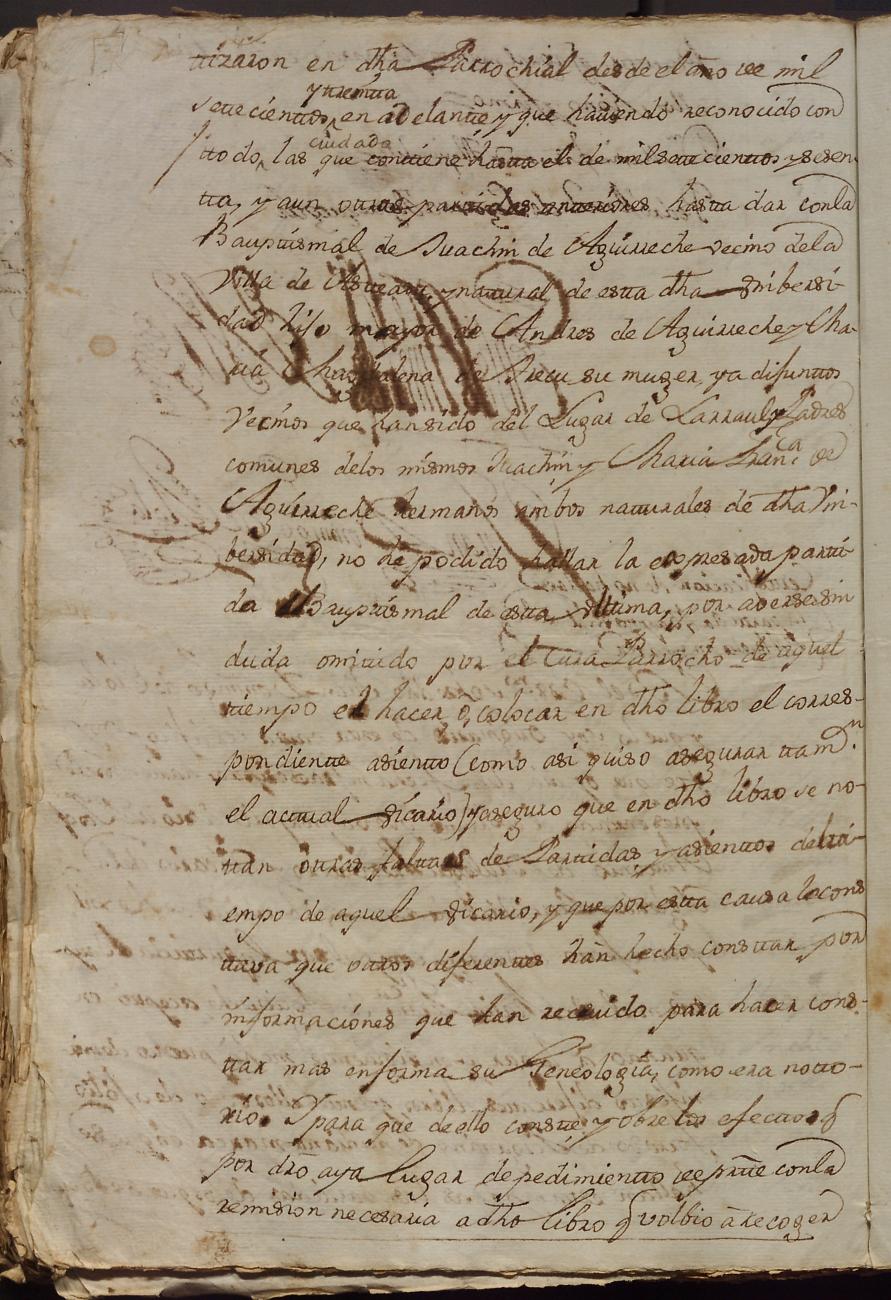 tizaron en dha Parrochial desde el año de mil
y treinta
setecientos, en adelante y que haviendo reconocido con
ciudada
todo, las que contiene hasta el de mil setecientos y sesen-
ta, y aun otras partidas anteriores, hasta dar con la
Bauptismal de Juachin de Aguirreche vecino de la
Villa de Asteasu, y natural de esta dha Vnibersi-
dad hijo mayor de Andres de Aguirreche y Cha-
ria Magdalena de Irecu su muger, ya difuntos
Vecinos que han sido del Lugar de Larraul, y Padres
comunes de los mismos Juachin y Maria Franca de
Aguirreche hermanos ambos naturales de dha Vni-
bersidad, no he podido hallar la expresada parti-
da Bauptismal de esta Vltima, por averse sin
duda omitido por el Cura Parrocho de aquel
tiempo el hacer o colocar en dho libro el corres-
pondiente asiento (como asi quiso asegurar tamn
el actual Vicario) y aseguro que en dho libro se no-
tan otras faltas de Partidas y asientos del ti-
empo de aquel Vicario, y que por esta causa le cons
tava que otros diferentes han hecho constar por
informaciones que han recevido para hacer cons-
tar mas en forma su Geneologia, como era noto-
rio. Y para que de ello conste y obre los efectos q
por dro aya lugar de pedimiento de prte con la
remision necesaria a dho libro q volbio a recoger